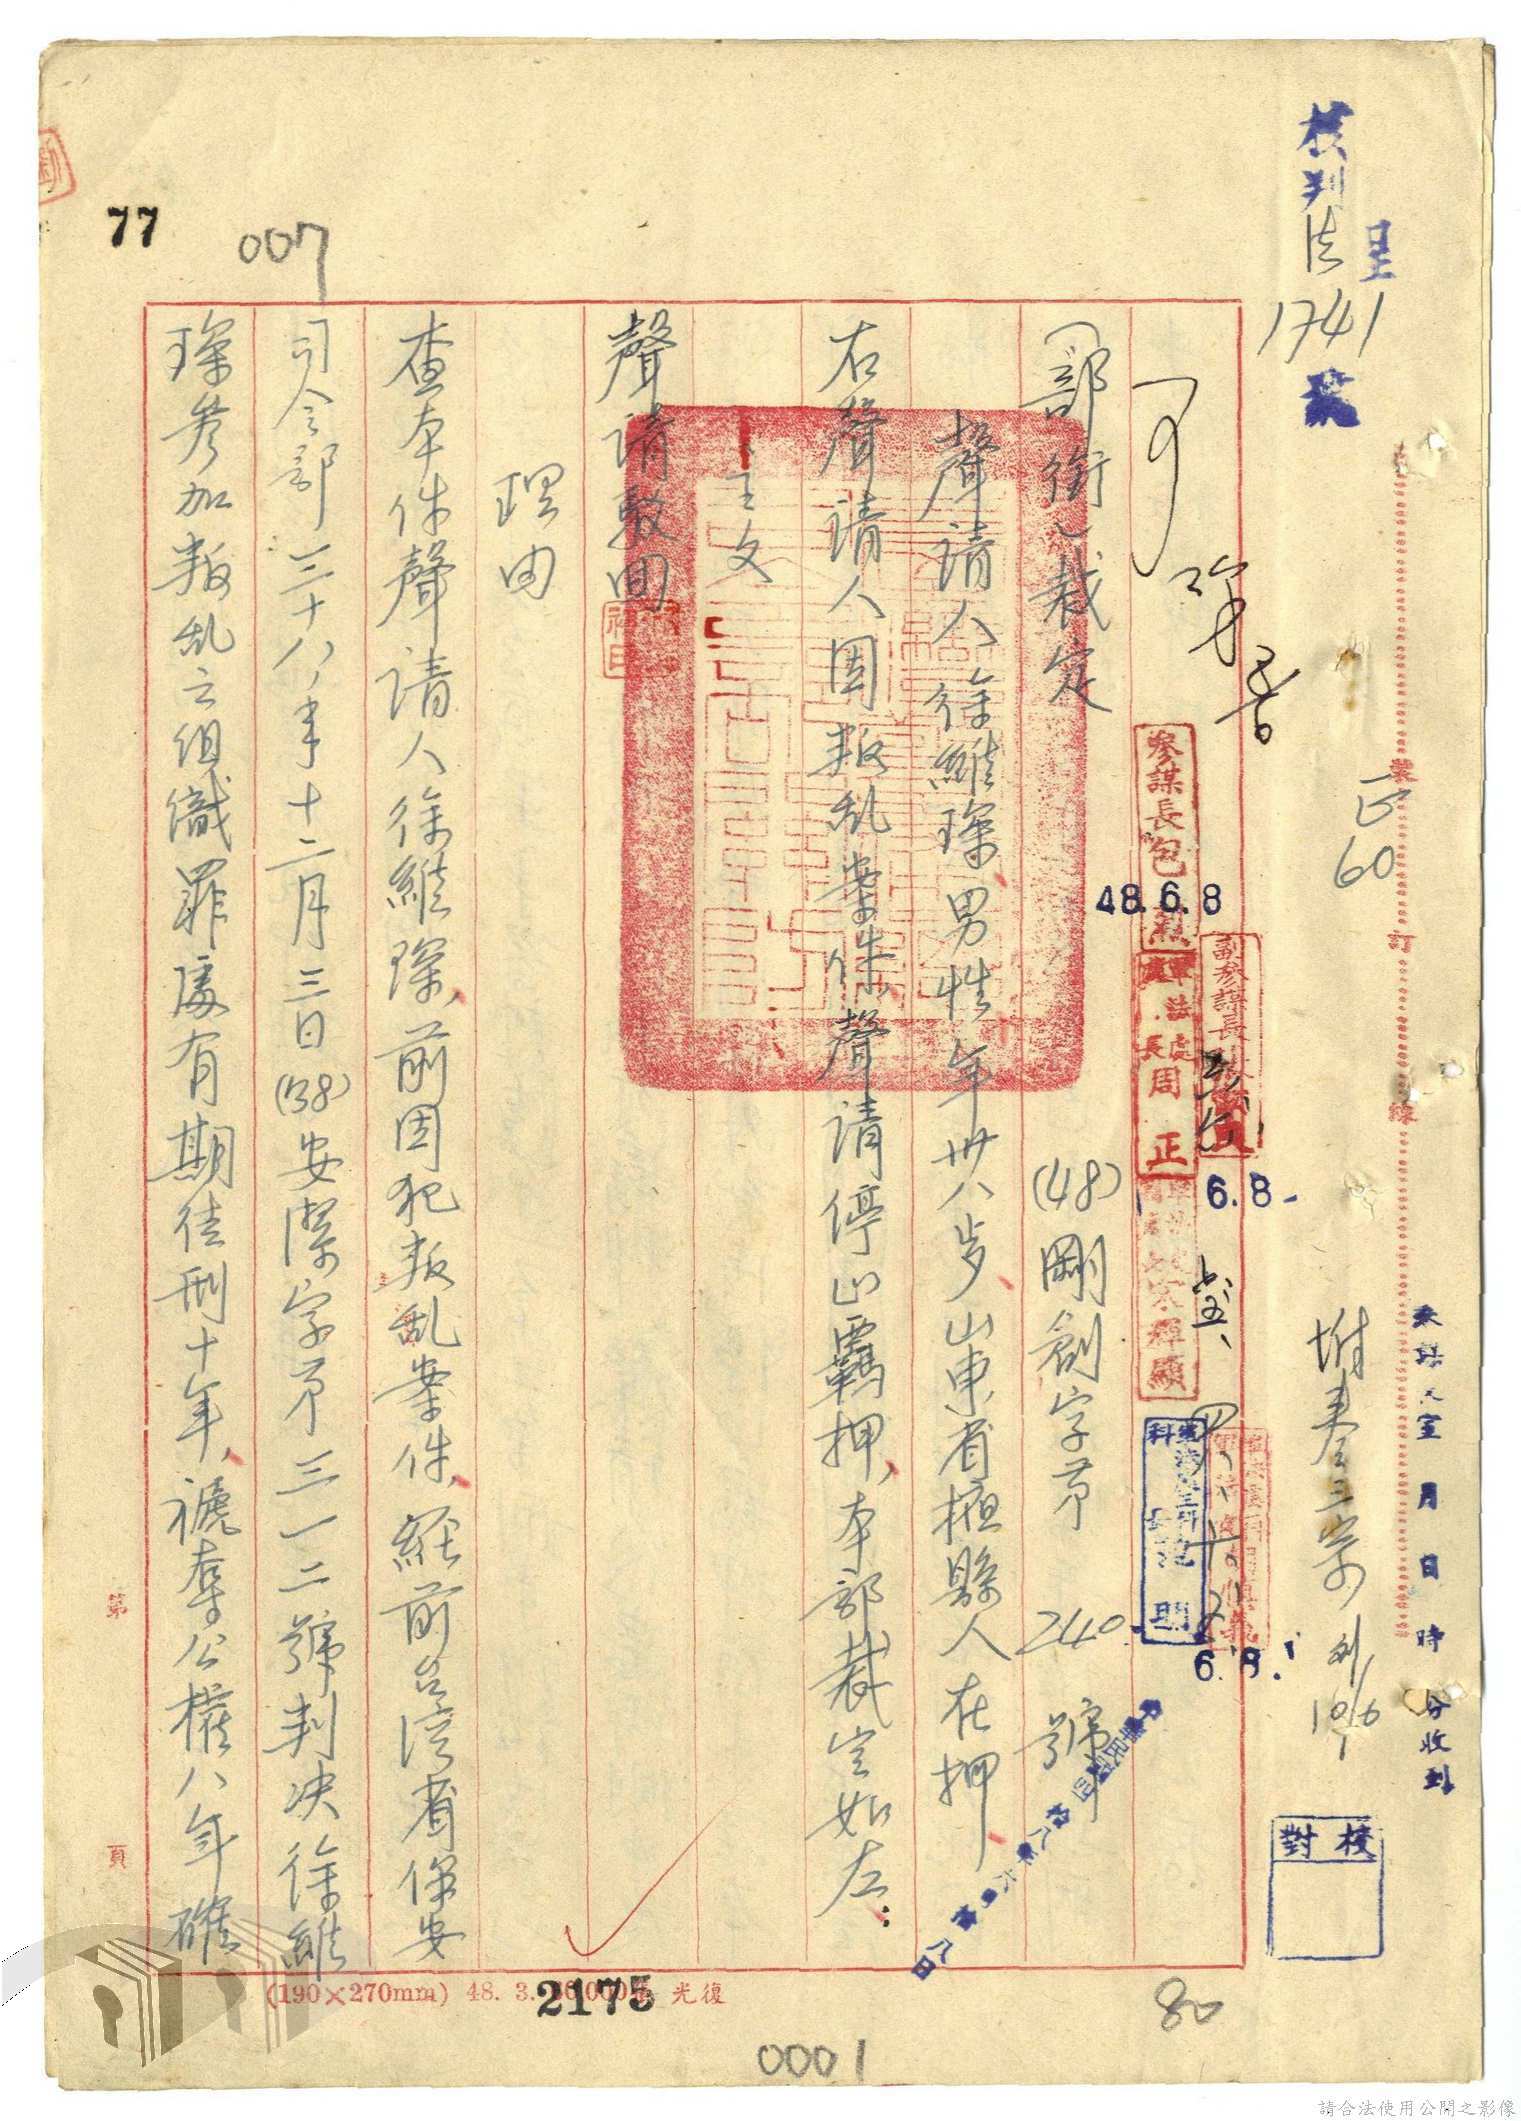 核判法
呈
1741
可
(部銜)裁定
(48)剛創字第 240 號
聲請人徐維琛男性年卅八歲山東省掖縣人在押
右聲請人因叛乱案件聲請停止羈押本部裁定如左：
主文
聲請駁囬
理由
查本件聲請人徐維琛前因犯叛乱案件經前台湾省保安
司令部三十八年十二月三日(38)安潔字第三一二號判决徐維
琛參加叛乱之組織罪處有期徒刑十年褫奪公權八年確
參謀長包烈
48.6.8
副參謀長
軍法處處長周正
6.8
科長
明
6.8.
正60
附卷三宗
10/6
裝
訂
線
月 日 時 分收到
校對
77
007
第
頁
(190×270mm) 48. 3.
光復
2175
0001
80
請合法使用公開之影像